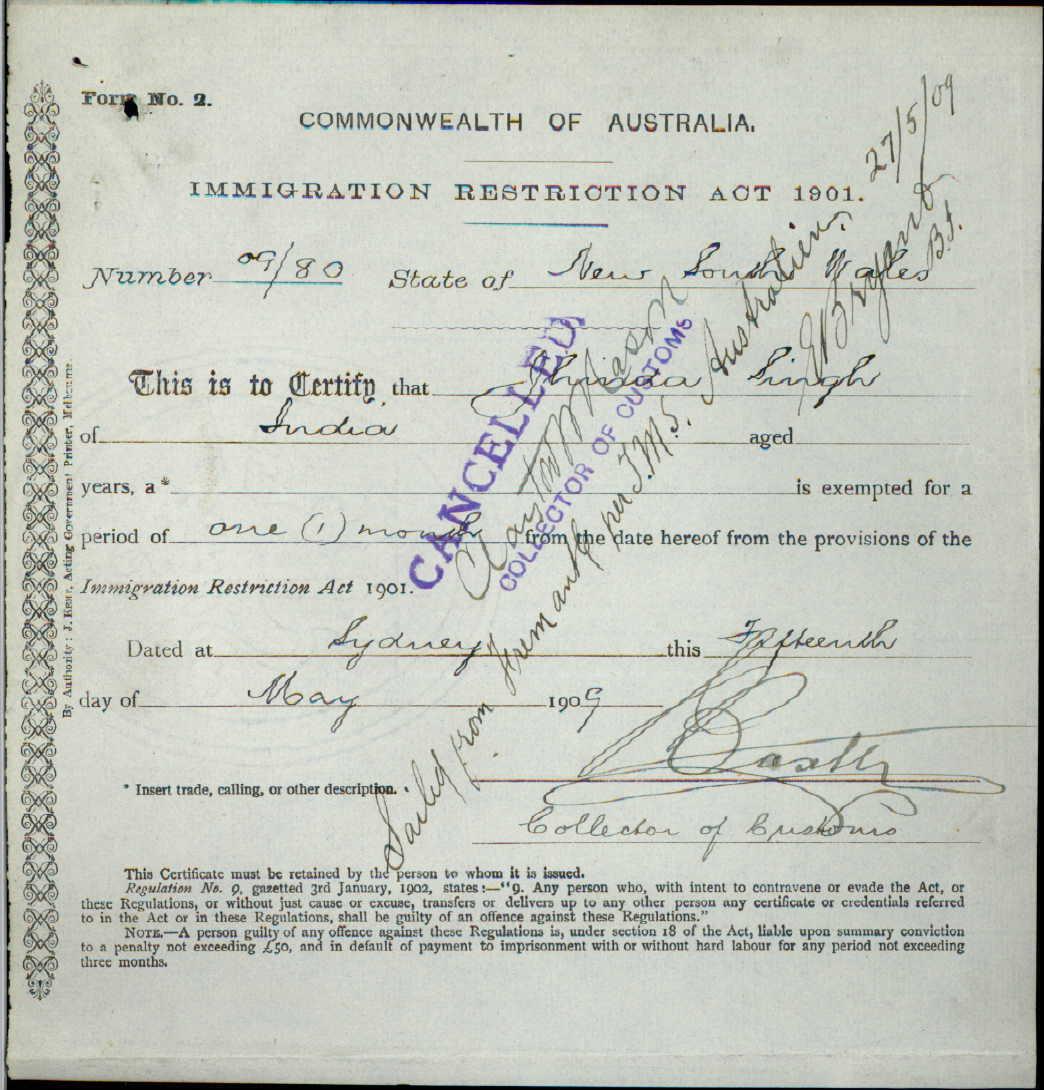 Form No. 2.
COMMONWEALTH OF AUSTRALIA.
IMMIGRATION RESTRICTION ACT 1901.
Number 09/80 State of New South Wales
This is to Certify that Singh
of India aged
years, a* is exempted for a
period of one (1) month from the date hereof from the provisions of the
Immigration Restriction Act 1901.
Dated at Sydney this Fifteenth
day of May 1909
* Insert trade, calling, or other description.
Collector of Customs
This Certificate must be retained by the person to whom it is issued.
Regulation No. 9, gazetted 3rd January, 1902, states:—"9. Any person who, with intent to contravene or evade the Act, or
these Regulations, or without just cause or excuse, transfers or delivers up to any other person any certificate or credentials referred
to in the Act or in these Regulations, shall be guilty of an offence against these Regulations."
NOTE.—A person guilty of any offence against these Regulations is, under section 18 of the Act, liable upon summary conviction
to a penalty not exceeding £50, and in default of payment to imprisonment with or without hard labour for any period not exceeding
three months.
By Authority: J. Kemp, Acting Government Printer, Melbourne.
CANCELLED
COLLECTOR OF CUSTOMS
Sailed from Fremantle per T.M.S. Australien
27/5/09